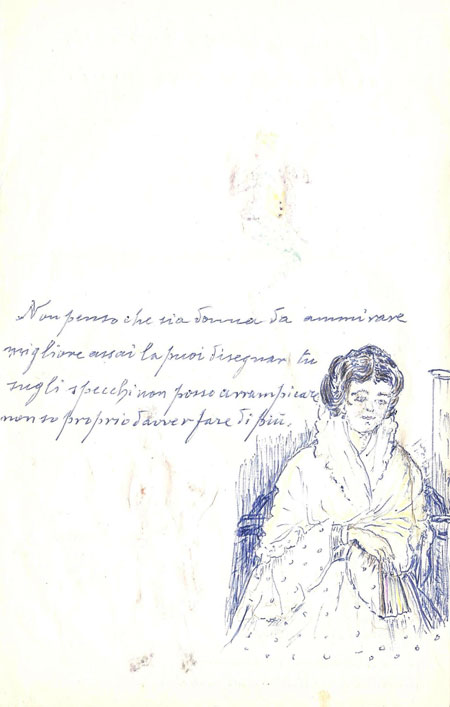 Non penso che sia donna da ammirare
migliore assai la puoi disegnar tu
sugli specchi non posso arrampicare
non so proprio davver fare di più.